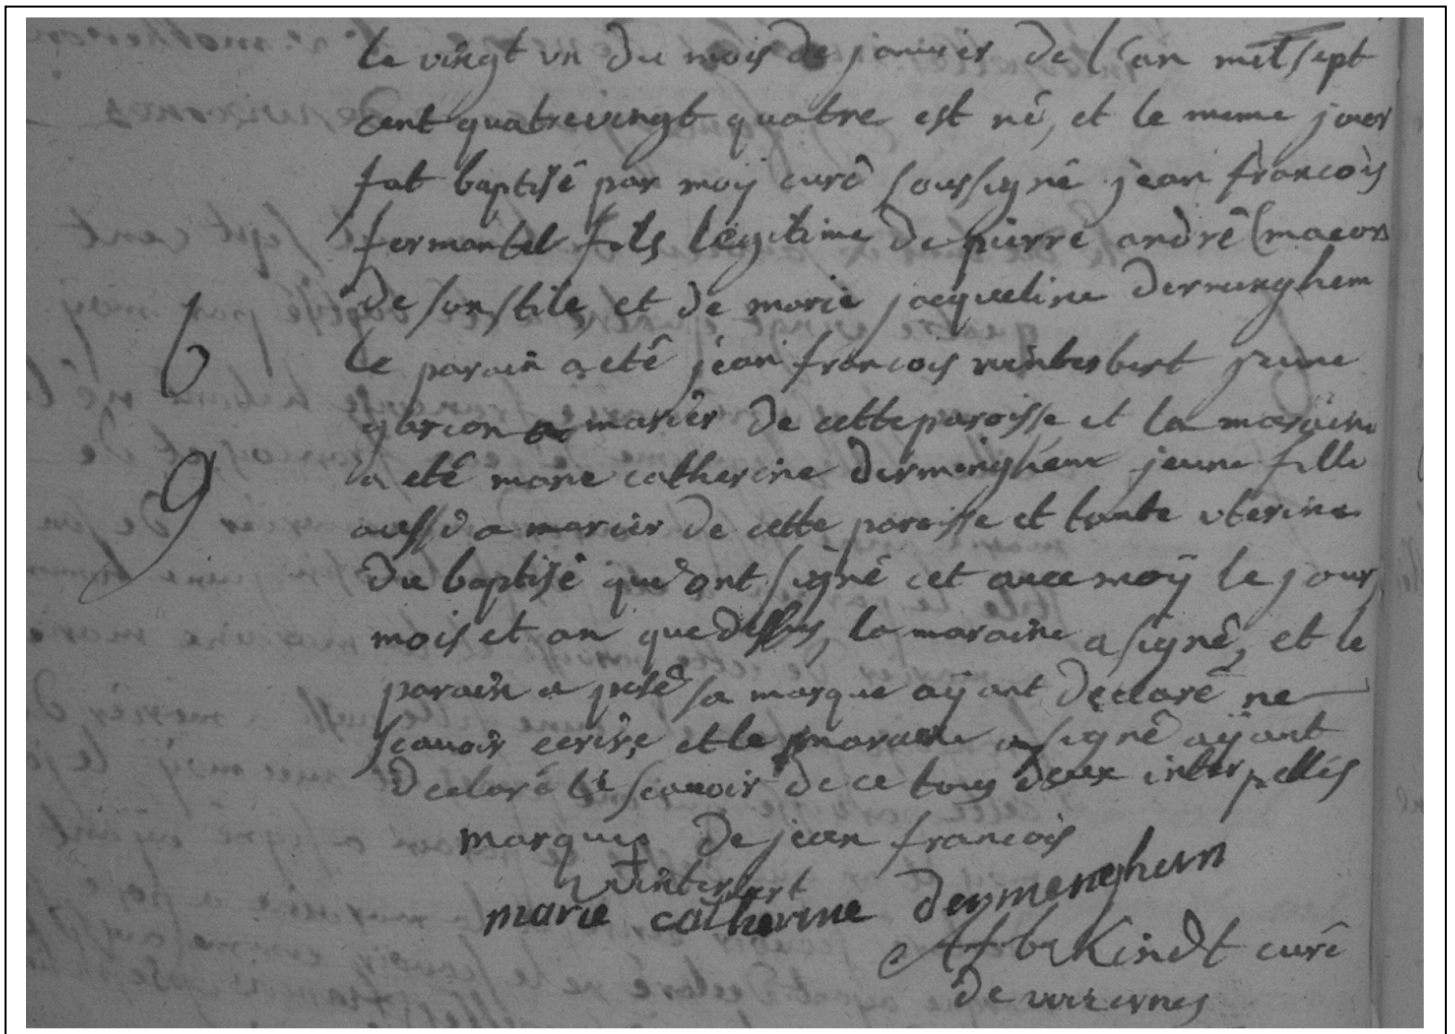 le vingt vn du mois de janvier de l'an mil sept
cent quatrevingt quatre est né, et le meme jour
fut baptisé par moy curé soussigné jean francois
fermantel fils legitime de pierre andré (macon
de son stile, et de marie jacqueline dermenghem
le parain a eté jean francois winterbert jeune
garcon a marier de cette paroisse et la maraine
a eté marie catherine dermenghem jeune fille
aussi a marier de cette paroisse et tante uterine
du baptisé qui ont signé cet avec moÿ le jour
mois et an que dessus, la maraine a signé, et le
parain a posé sa marque aÿant declaré ne
scavoir ecrire et la maraine a signé aÿant
declaré le scavoir de ce tous deux interpellés
6
9
marque de jean francois
winterbert
marie catherine dermenghem
Kindt curé
de